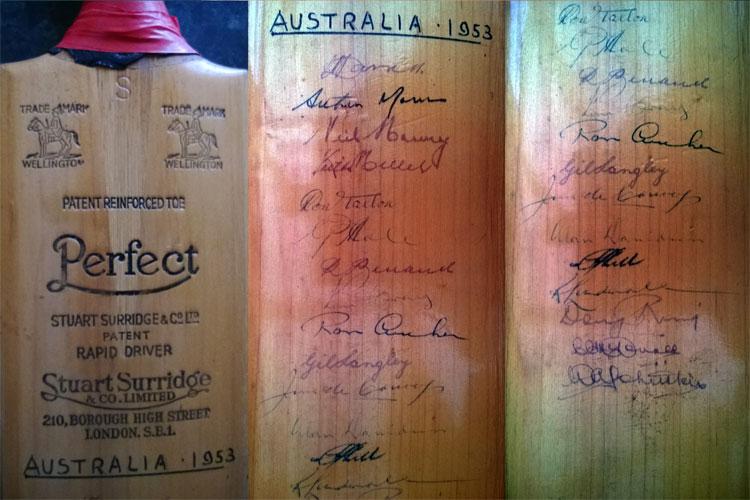 S
TRADE MARK
WELLINGTON
TRADE MARK
WELLINGTON
PATENT REINFORCED TOE
Perfect
STUART SURRIDGE & CO LTD
PATENT
RAPID DRIVER
Stuart Surridge
& CO. LIMITED
210, BOROUGH HIGH STREET
LONDON. S.E.1.
AUSTRALIA · 1953
AUSTRALIA · 1953
Arthur Morris
Neil Harvey
Keith Miller
Don Tallon
G. Hole
R Benaud
Ron Archer
Gil Langley
Jim de Courcy
Alan Davidson
Don Tallon
G. Hole
R Benaud
Ron Archer
Gil Langley
Jim de Courcy
Alan Davidson
Doug Ring